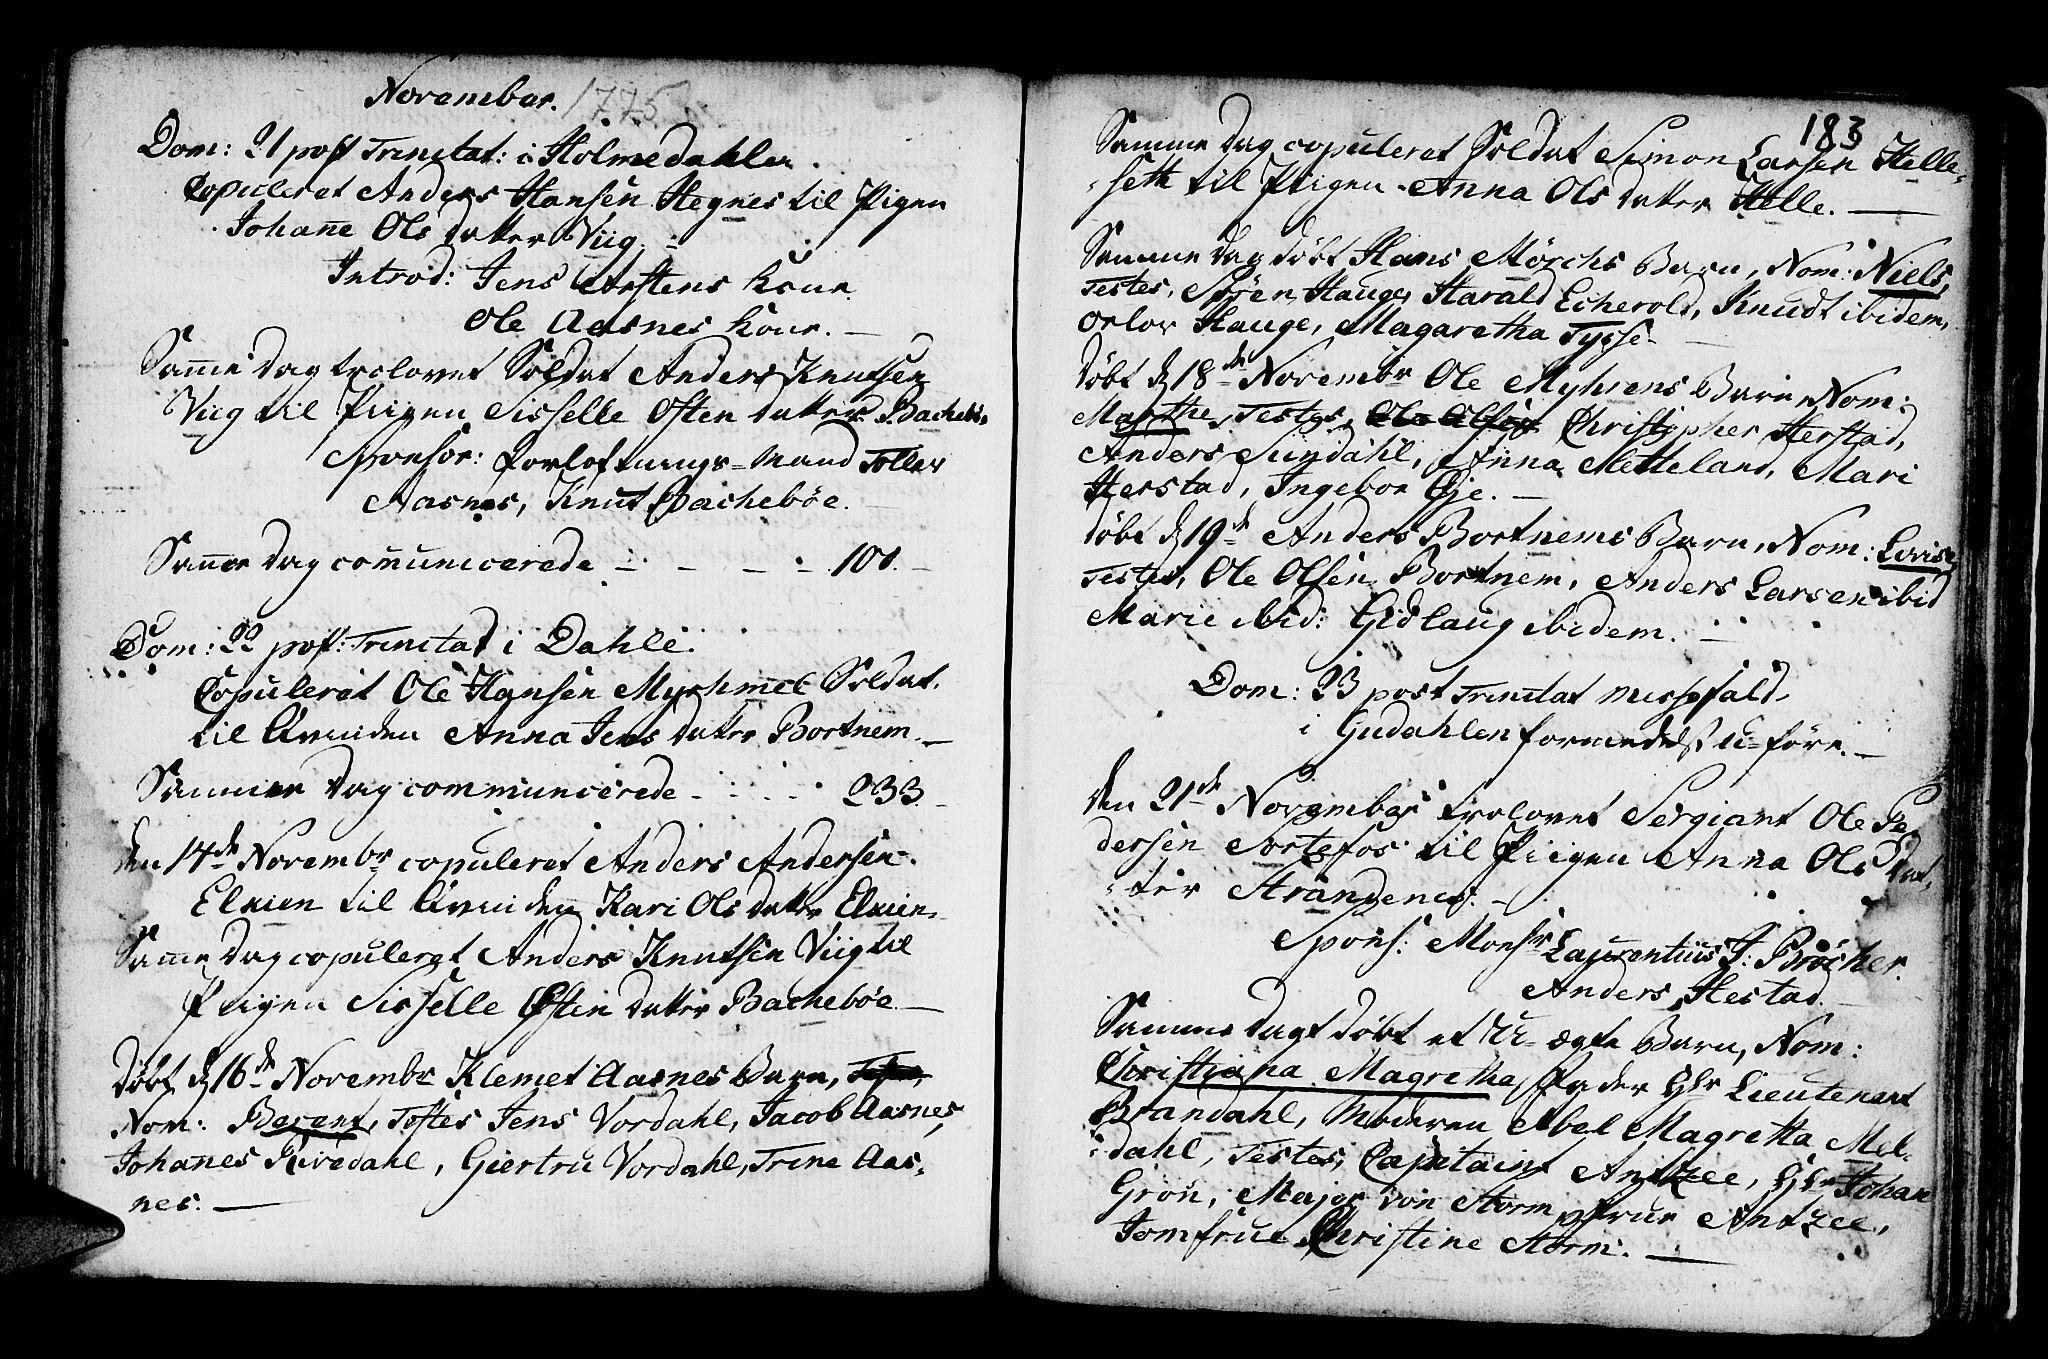 November. 1775
Dom: 21 post Trinitat: i Holmedahlen.
Copuleret Anders Hansen Hegnes til Pigen
Johan̄e Ols Datter Viig.
Introd: Jens Aastens Kone.
Ole Aasnes Kone. —
Sam̄e Dag trolovet Soldat Anders Knutsen
Viig til Piigen Sisselle Østen Datter Bachebö.
Sponsor: Forlofnings-Mand Toller
Aasnes, Knut Bachebøe.
Sam̄e Dag com̄unicerede - - - 101. -
Dom: 22 post: Trinitat i Dahle.
Copuleret Ole Hansen Myrhmel Soldat.
til Qvinden Anna Jens Datter Bortnem. —
Sammen Dag communicerede - - - 233 -
Den 14de Novembr copuleret Anders Andersen
Elvien til Qvinden Kari Ols Datter Elvien.
Sam̄e Dag copuleret Anders Knutsen Viig til
Piigen Sisselle Østen Datter Bachebøe. —
Döbt d 16de Novembr Klemet Aasnes Barn,
Nom: Berent, Testes Jens Vordahl, Jacob Aasnes,
Johan̄es Kivedahl, Giertru Vordahl, Trine Aas-
nes. —
183
Samme Dag copuleret Soldat Simon Larsen Helle-
seth til Piigen Anna Ols Datter Helle. —
Samme Dag döbt Hans Mörchs Barn, Nom: Niels,
Testes, Sören Hauge, Harald Echerold, Knudt ibidem,
Orlov Hauge, Magaretha Tysse. -
Döbt d 18de Novembr Ole Myhrens Barn Nom:
Marthe, Testes, Ole Olsen Christopher Herstad,
Anders Sundahl, Anna Metteland, Mari
Herstad, Ingebor Øie. —
Döbt d 19de Anders Bortnems Barn, Nom: Lovise,
Testes, Ole Olsen Bortnem, Anders Larsen ibid
Marie ibid: Gidlaug ibidem. —
Dom: 23 post Trinitat messefald
i Gudahlen formedelst u-före. —
Den 21de November trolovet Sergiant Ole Pe-
dersen Sortefos til Piigen Anna Ols Dat-
ter Strandenes. -
Spons: Monsr Laurentius J: Bröcher.
Anders Hestad. —
Samme Dagt döbt et U-ægte Barn, Nom:
Christiana Magretha, Fader Hr Lieutenant
Brandahl, Moderen Abel Magretta Mel-
dahl, Testes, Capitain Antzee, Hr Johan
Grön, Major von Storm, Frue Antzee,
Jomfrue Christine Storm. —